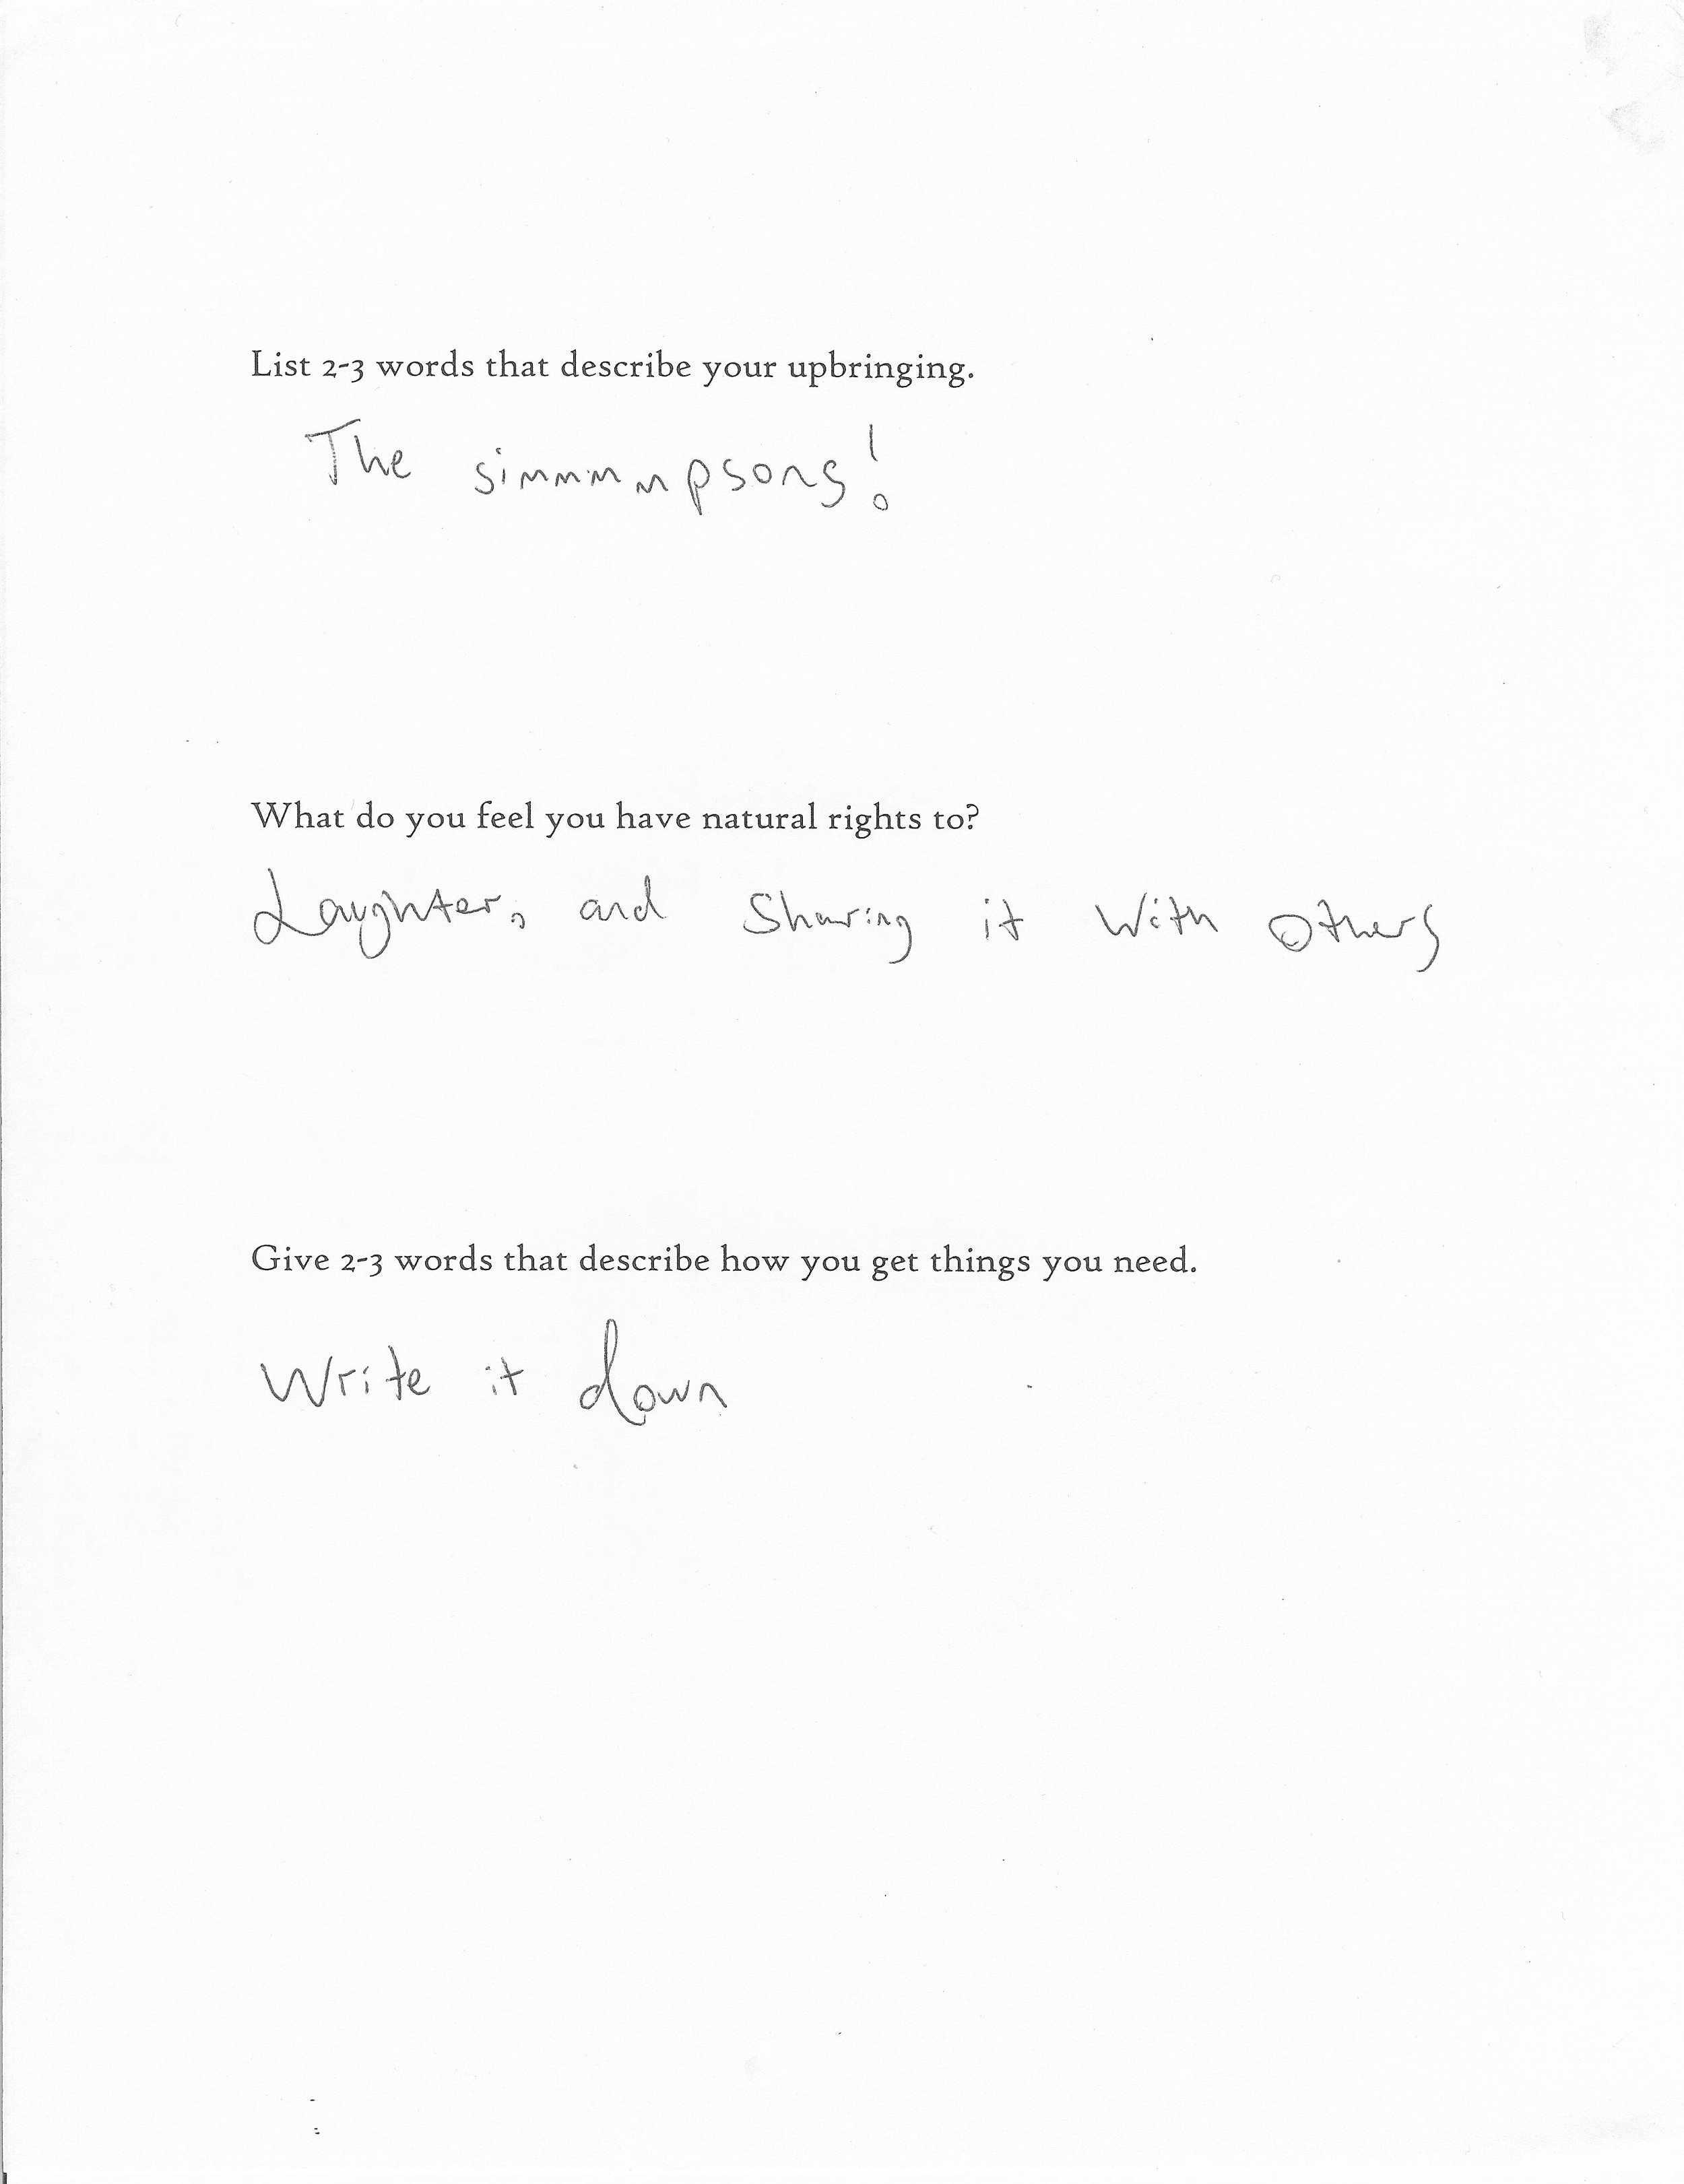 List 2-3 words that describe your upbringing.
The simmmmpsons!
What do you feel you have natural rights to?
Laughter, and Sharing it With Others
Give 2-3 words that describe how you get things you need.
Write it down